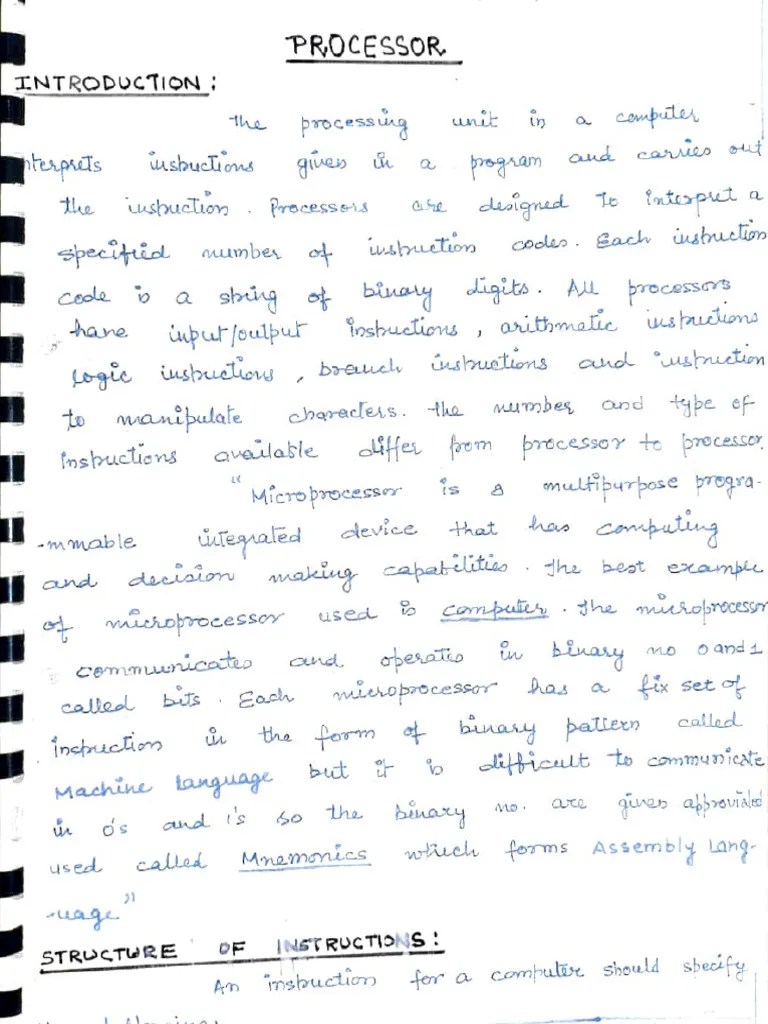 PROCESSOR
INTRODUCTION :
The processing unit in a computer
nterprets instructions given in a program and carries out
the instruction. Processors are designed to interpret a
specified number of instruction codes. Each instruction
code is a string of binary digits. All processors
have input/output instructions, arithmetic instructions
Logic instructions, branch instructions and instruction
to manipulate characters. The number and type of
instructions available differ from processor to processor.
"Microprocessor is a multipurpose progra-
-mmable integrated device that has computing
and decision making capabilities. The best example
of microprocessor used is computer. The microprocessor
communicates and operates in binary no 0 and 1
called bits. Each microprocessor has a fix set of
instruction in the form of binary pattern called
Machine language but it is difficult to communicate
in 0's and 1's so the binary no. are given
used called Mnemonics which forms Assembly Lang-
-uage"
STRUCTURE OF INSTRUCTIONS :
An instruction for a computer should specify